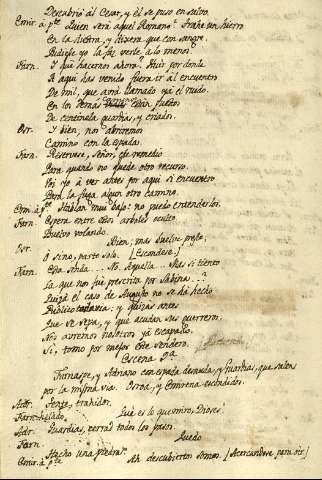 Descubrió al Cesar, y él se puso en salvo.
Emir. á p.te Quien será aquel Romano? Trahe un hierro
En la diestra, y tixera que con sangre.
Pudiese yo la faz verle á lo menos!
Farn. Y qué hacemos ahora? Huir por donde
De aquí has venido fuera ir al encuentro
De mil, que avrá llamado ya el ruido.
En los demas están puestos
De centinela guardias, y criados.
Osr. Y bien, nos abriremos
Camino con la espada.
Farn. Reservese, Señor, ese remedio
Para quando no quede otro recurso.
Voy yo á ver antes por aqui si encuentro
Para la fuga algun otro camino.
Emi. á p.te Hablan muy bajo: no puedo entenderlos.
Farn. Espera entre esos arboles oculto.
Buelvo volando.
Osr. Bien; mas buelve presto,
O sino, parto solo. [Escondese.]
Farn. Esa senda... No. Aquella... Mas si tiento
La que no fue prescrita por Sabina...?
Quizá el caso de Augusto no se há hecho
Publico todavia: y quizás antes
Que se sepa, y que acudan sus guerreros,
Nos avremos nosotros ya escapado.
Si, tomo por mejor este sendero.
Escena 9.a
Farnaspe, y Adriano con espada desnuda, y Guardias, que salen
por la misma via. Osroa, y Emirena escondidos.
Adr. Tente, trahidor.
Farn. helado. Qué es lo que miro, Dioses.
Adr. Guardias, cerrad todos los pasos.
Farn. Quedo
Hecho una piedra.
Emir. á p.te Ah descubiertos somos. [Acercandose para oir.]